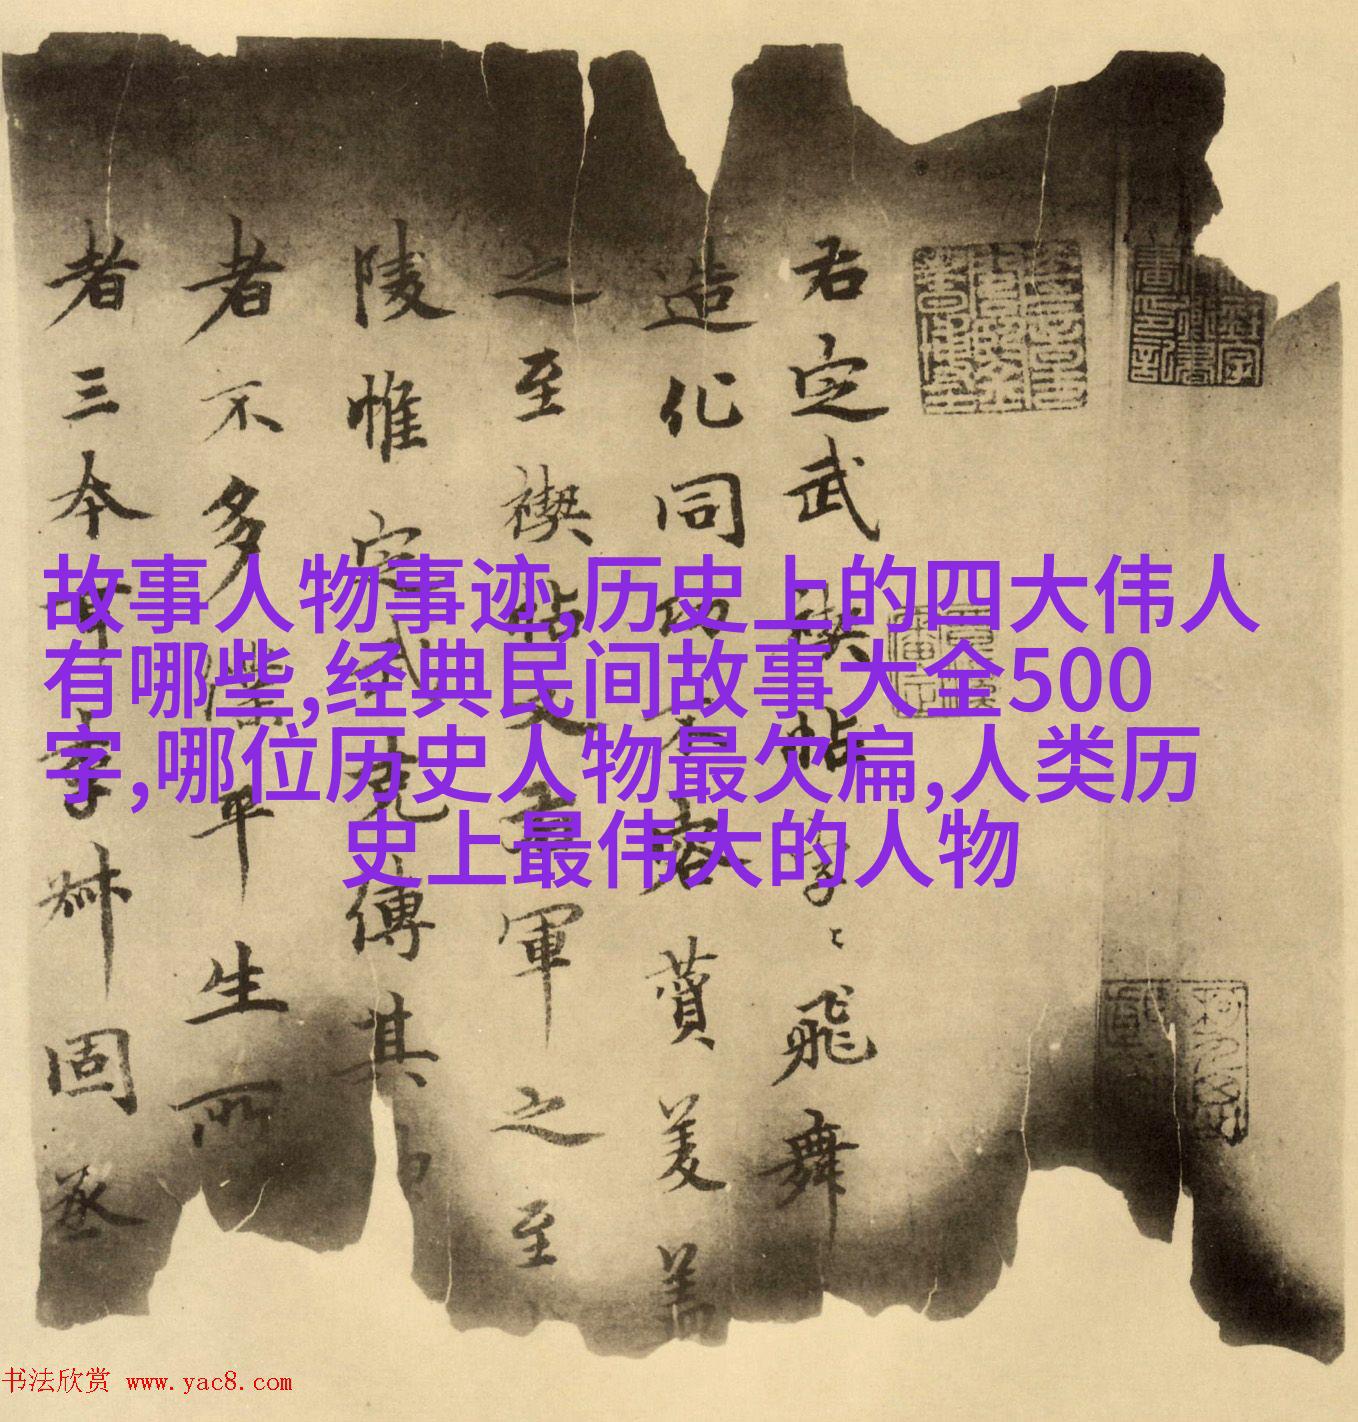 故事人物事迹,历史上的四大伟人
有哪些,经典民间故事大全500
字,哪位历史人物最欠扁,人类历
史上最伟大的人物
定武禊帖字〻飛舞
造化同功不容美蓋
之至禊帖又右軍之至
陵惟定武克傳其
者不多僕平生所
者三本字固丞
书法欣赏 www.yac8.com